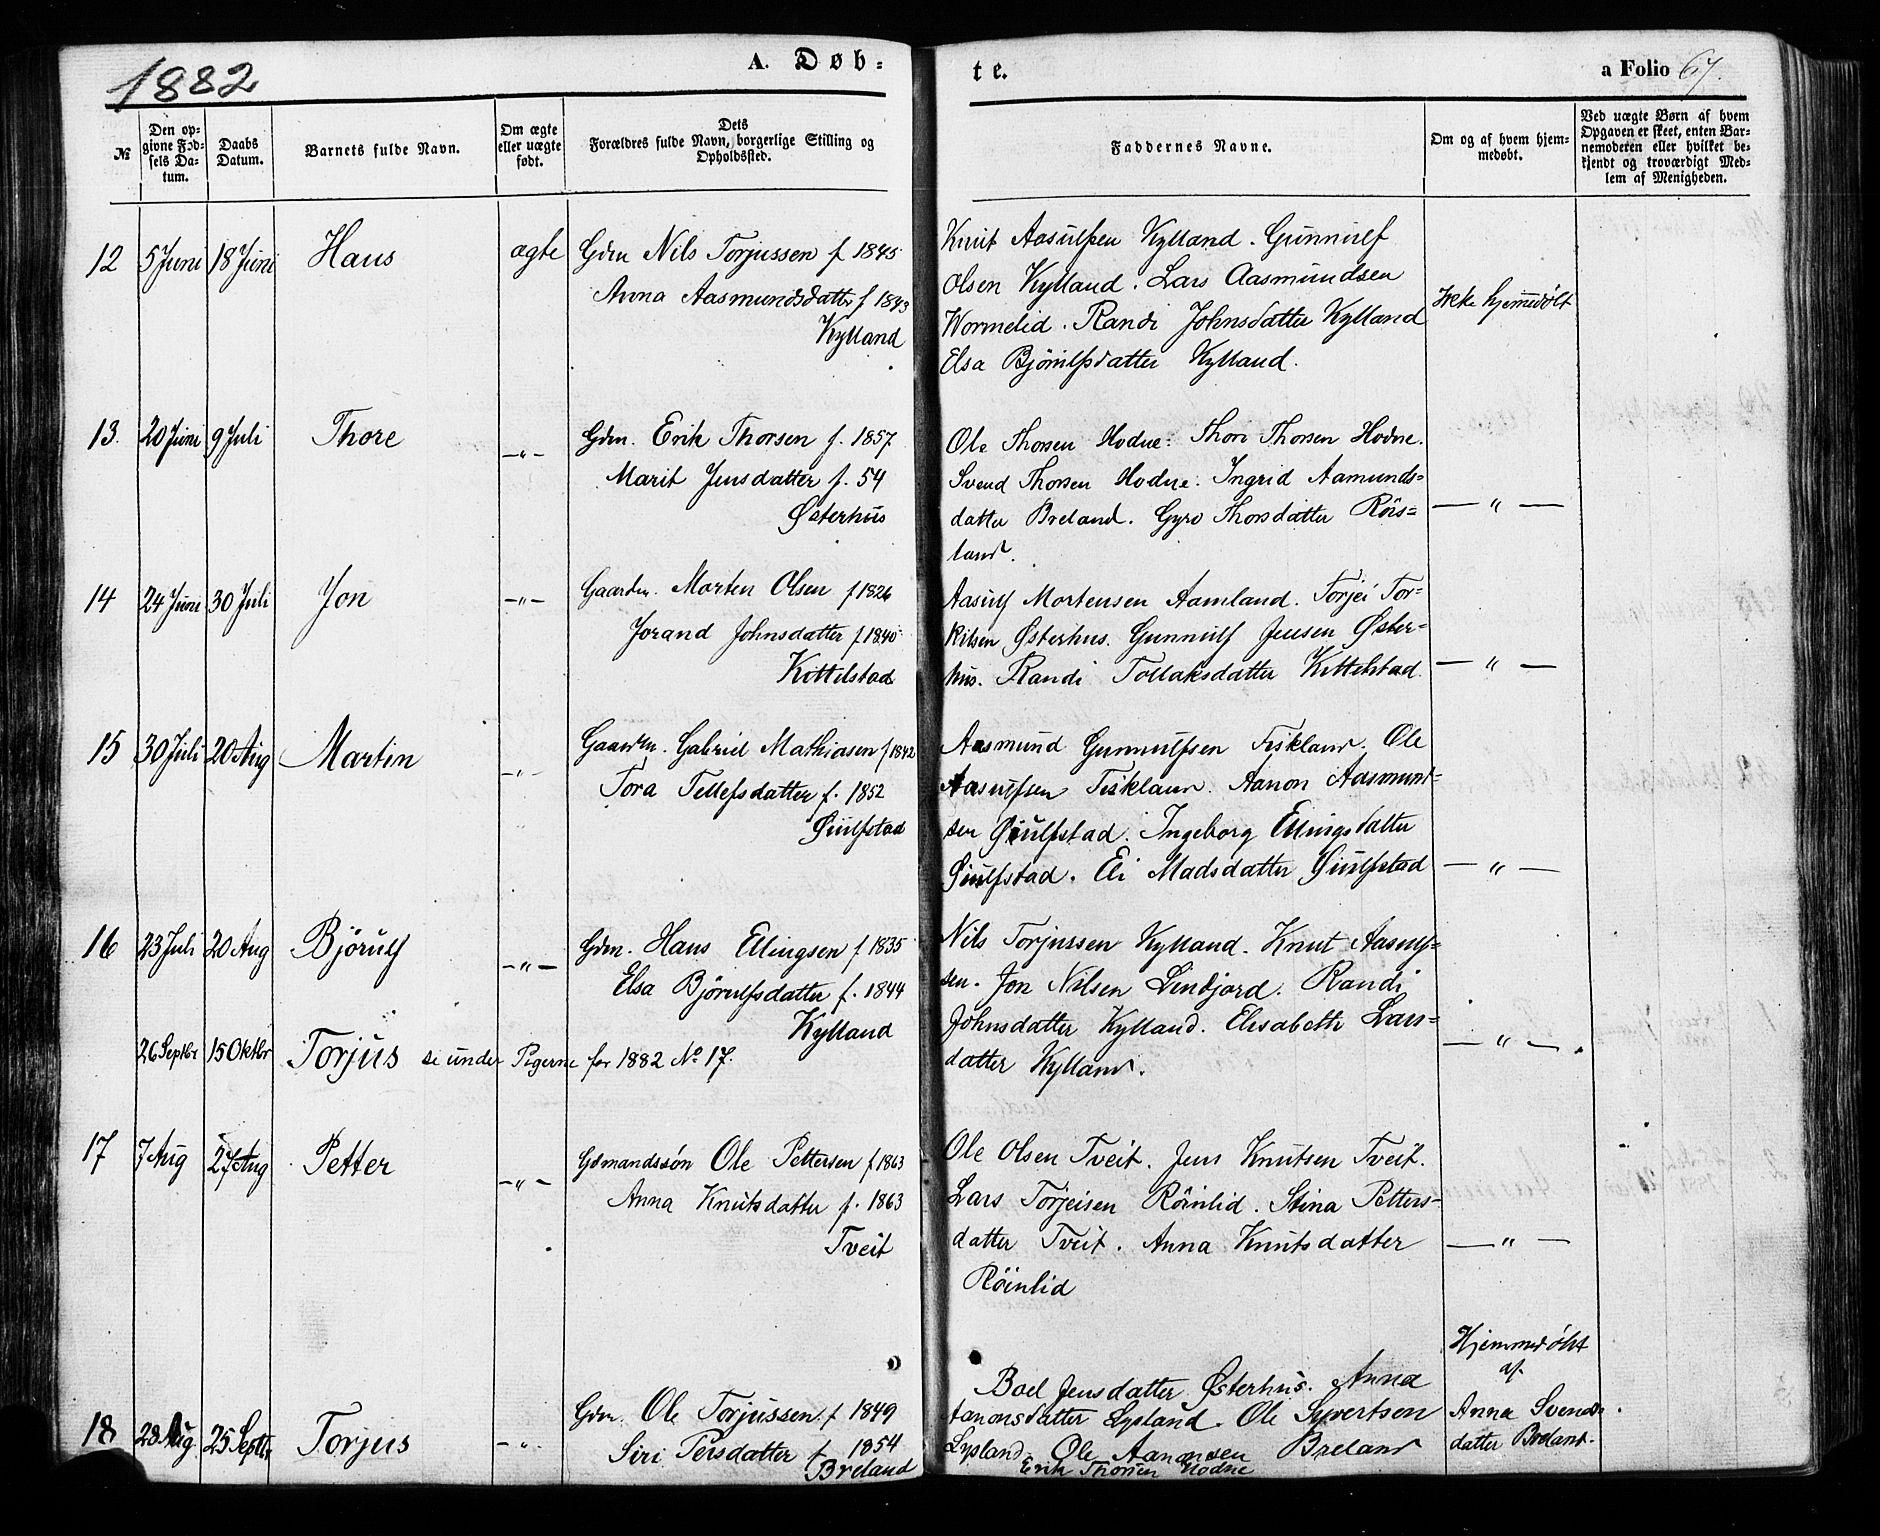 1882
A. Døb-
te.
a Folio 67.
№
Den op-
givne Fød-
sels Da-
tum.
Daabs
Datum.
Barnets fulde Navn.
Om ægte
eller uægte
født.
Dets
Forældres fulde Navn, borgerlige Stilling og
Opholdssted.
Faddernes Navne.
Om og af hvem hjem-
medøbt.
Ved uægte Børn af hvem
Opgaven er skeet, enten Bar-
nemoderen eller hvilket be-
kjendt og troværdigt Med-
lem af Menigheden.
12 5 Juni 18 Juni Hans ægte Gdm Nils Torjussen f 1845
Anna Aasmundsdatter f 1843
Kylland
Knut Aasulfsen Kylland. Gunnulf
Olsen Kylland. Lars Aasmundsen
Wormelid. Randi Johnsdatter Kylland
Elsa Bjørulfsdatter Kylland.
Ikke hjemmedøbt
13. 20 Juni 9 Juli Thore —"— Gdm. Erik Thorsen f. 1857.
Marit Jensdatter f. 54
Østerhus
Ole Thorsen Hodne. Thore Thorsen Hodne.
Svend Thorsen Hodne. Ingrid Aamunds-
datter Breland. Gyro Thorsdatter Røis-
land.
— " —
14 24 Juni 30 Juli Jon —"— Gaardm. Morten Olsen f 1826
Jorand Johnsdatter f. 1840
Kittelstad
Aasulf Mortensen Aamland. Torjei Tor-
kilsen Østerhus. Gunnulf Jensen Øster-
hus. Randi Tollaksdatter Kittelstad.
— " —
15 30 Juli 20 Aug Martin —"— Gaardm. Gabriel Mathiasen f 1842
Tora Tellefsdatter f. 1852
Øiulfstad
Aasmund Gunnulfsen Fiskland. Ole
Aasulfsen Fiskland. Aanon Aasmund-
sen Øiulfstad. Ingeborg Ellingsdatter
Øiulfstad. Eli Madsdatter Øiulfstad
— " —
16 23 Juli 20 Aug Bjørulf —"— Gdm. Hans Ellingsen f 1835
Elsa Bjørulfsdatter f. 1844
Kylland
Nils Torjussen Kylland. Knut Aasulf-
sen. Jon Nilsen Lindjord. Randi
Johnsdatter Kylland. Elisabeth Lars-
datter Kylland.
— " —
26 Septbr 15 Oktbr Torjus se under Pigerne for 1882 No 17.
17 7 Aug 27 Aug Petter —"— Gdmandssøn Ole Pettersen f 1863
Anna Knutsdatter f. 1863
Tveit
Ole Olsen Tveit. Jens Knutsen Tveit.
Lars Torjeisen Röinlid. Stina Petters-
datter Tveit. Anna Knutsdatter
Röinlid
— " —
18 28 Aug 25 Septbr Torjus —"— Gdm. Ole Torjussen f 1849
Siri Persdatter f 1854
Breland
Boel Jensdatter Østerhus. Anna
Aanonsdatter Lysland. Ole Syvertsen
Lysland. Ole Aanonsen Breland
Erik Thorsen Hodne
Hjemmedøbt
af
Anna Svends-
datter Breland.